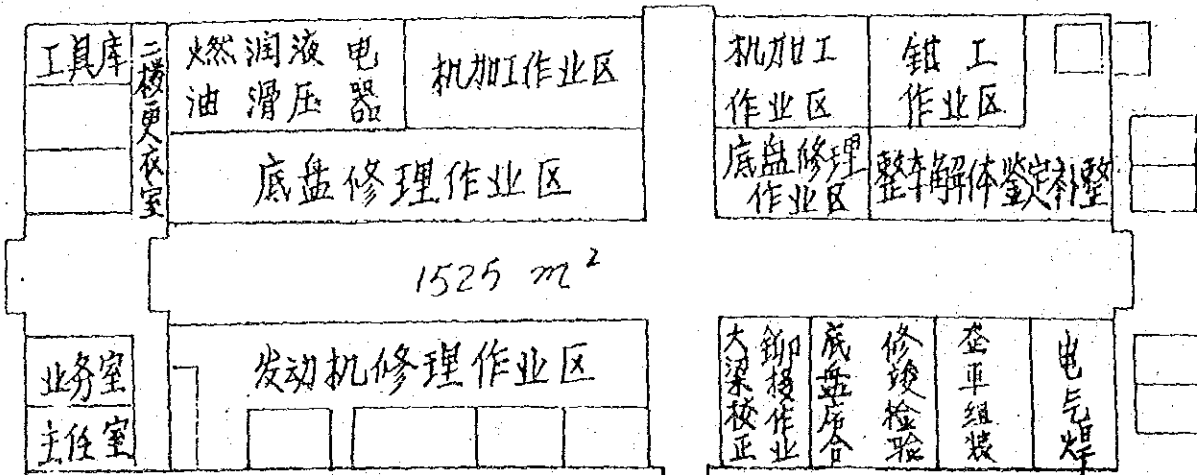 工具库
二楼更衣室
燃润液电
油滑压器
机加工作业区
机加工
作业区
钳工
作业区
底盘修理作业区
底盘修理
作业区
整车解体鉴定补整
1525 m²
业务室
主任室
发动机修理作业区
大梁校正
铆接作业
底盘
合
修竣检验
组装
电气焊